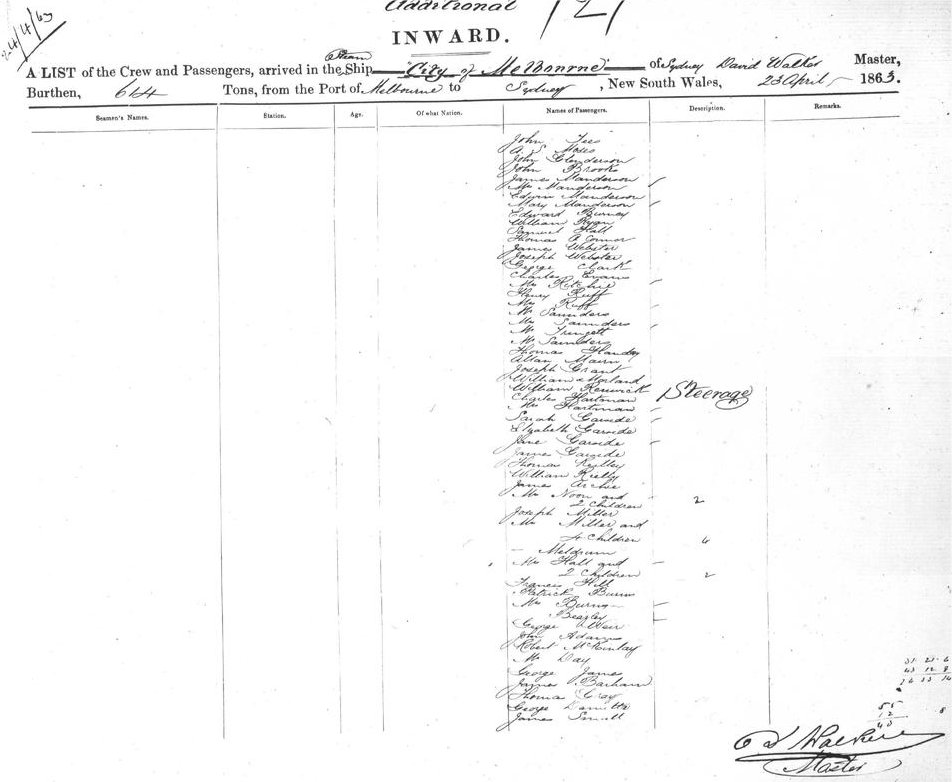 Additional
121
24/4/63
INWARD.
A LIST of the Crew and Passengers, arrived in the Steam Ship City of Melbourne of Sydney David Walker Master,
Burthen, 614 Tons, from the Port of Melbourne to Sydney, New South Wales, 23 April 1863.
Seamen's Names. Station. Age. Of what Nation. Names of Passengers. Description. Remarks.
John Fees
A. S. Moses
John Glenderson
John Brooks
James Manderson
Mrs Manderson
Edwin Manderson
Mary Manderson
Edward Burney
William Ryan
Samuel Hall
Thomas O Connor
James Webster
Joseph Webster
George Clark
Charles Evans
Mrs Ritchie
Henry Ruff
Mrs Ruff
Mr Saunders
Mrs Saunders
Mr
Mr Saunders
Thomas
Allan
Joseph Grant
William Morland
William Renwick
Charles Hartman
Steerage
Mrs Hartman
Sarah Garside
Elizabeth Garside
Jane Garside
James Garside
Thomas
William Kielly
James Archie
Mrs Noon and
2 Children 2
Joseph Miller
Mrs Miller and
4 Children 4
— Meldrum
Mrs Hall and
2 Children 2
Francis Hill
Patrick Burns
Mrs Burns
Beazley
George Weir
John Adams
Robert McKinlay
Mr Day
George James
James Barham
Thomas Gray
George
James Small
55
12
43
D Walker
Master